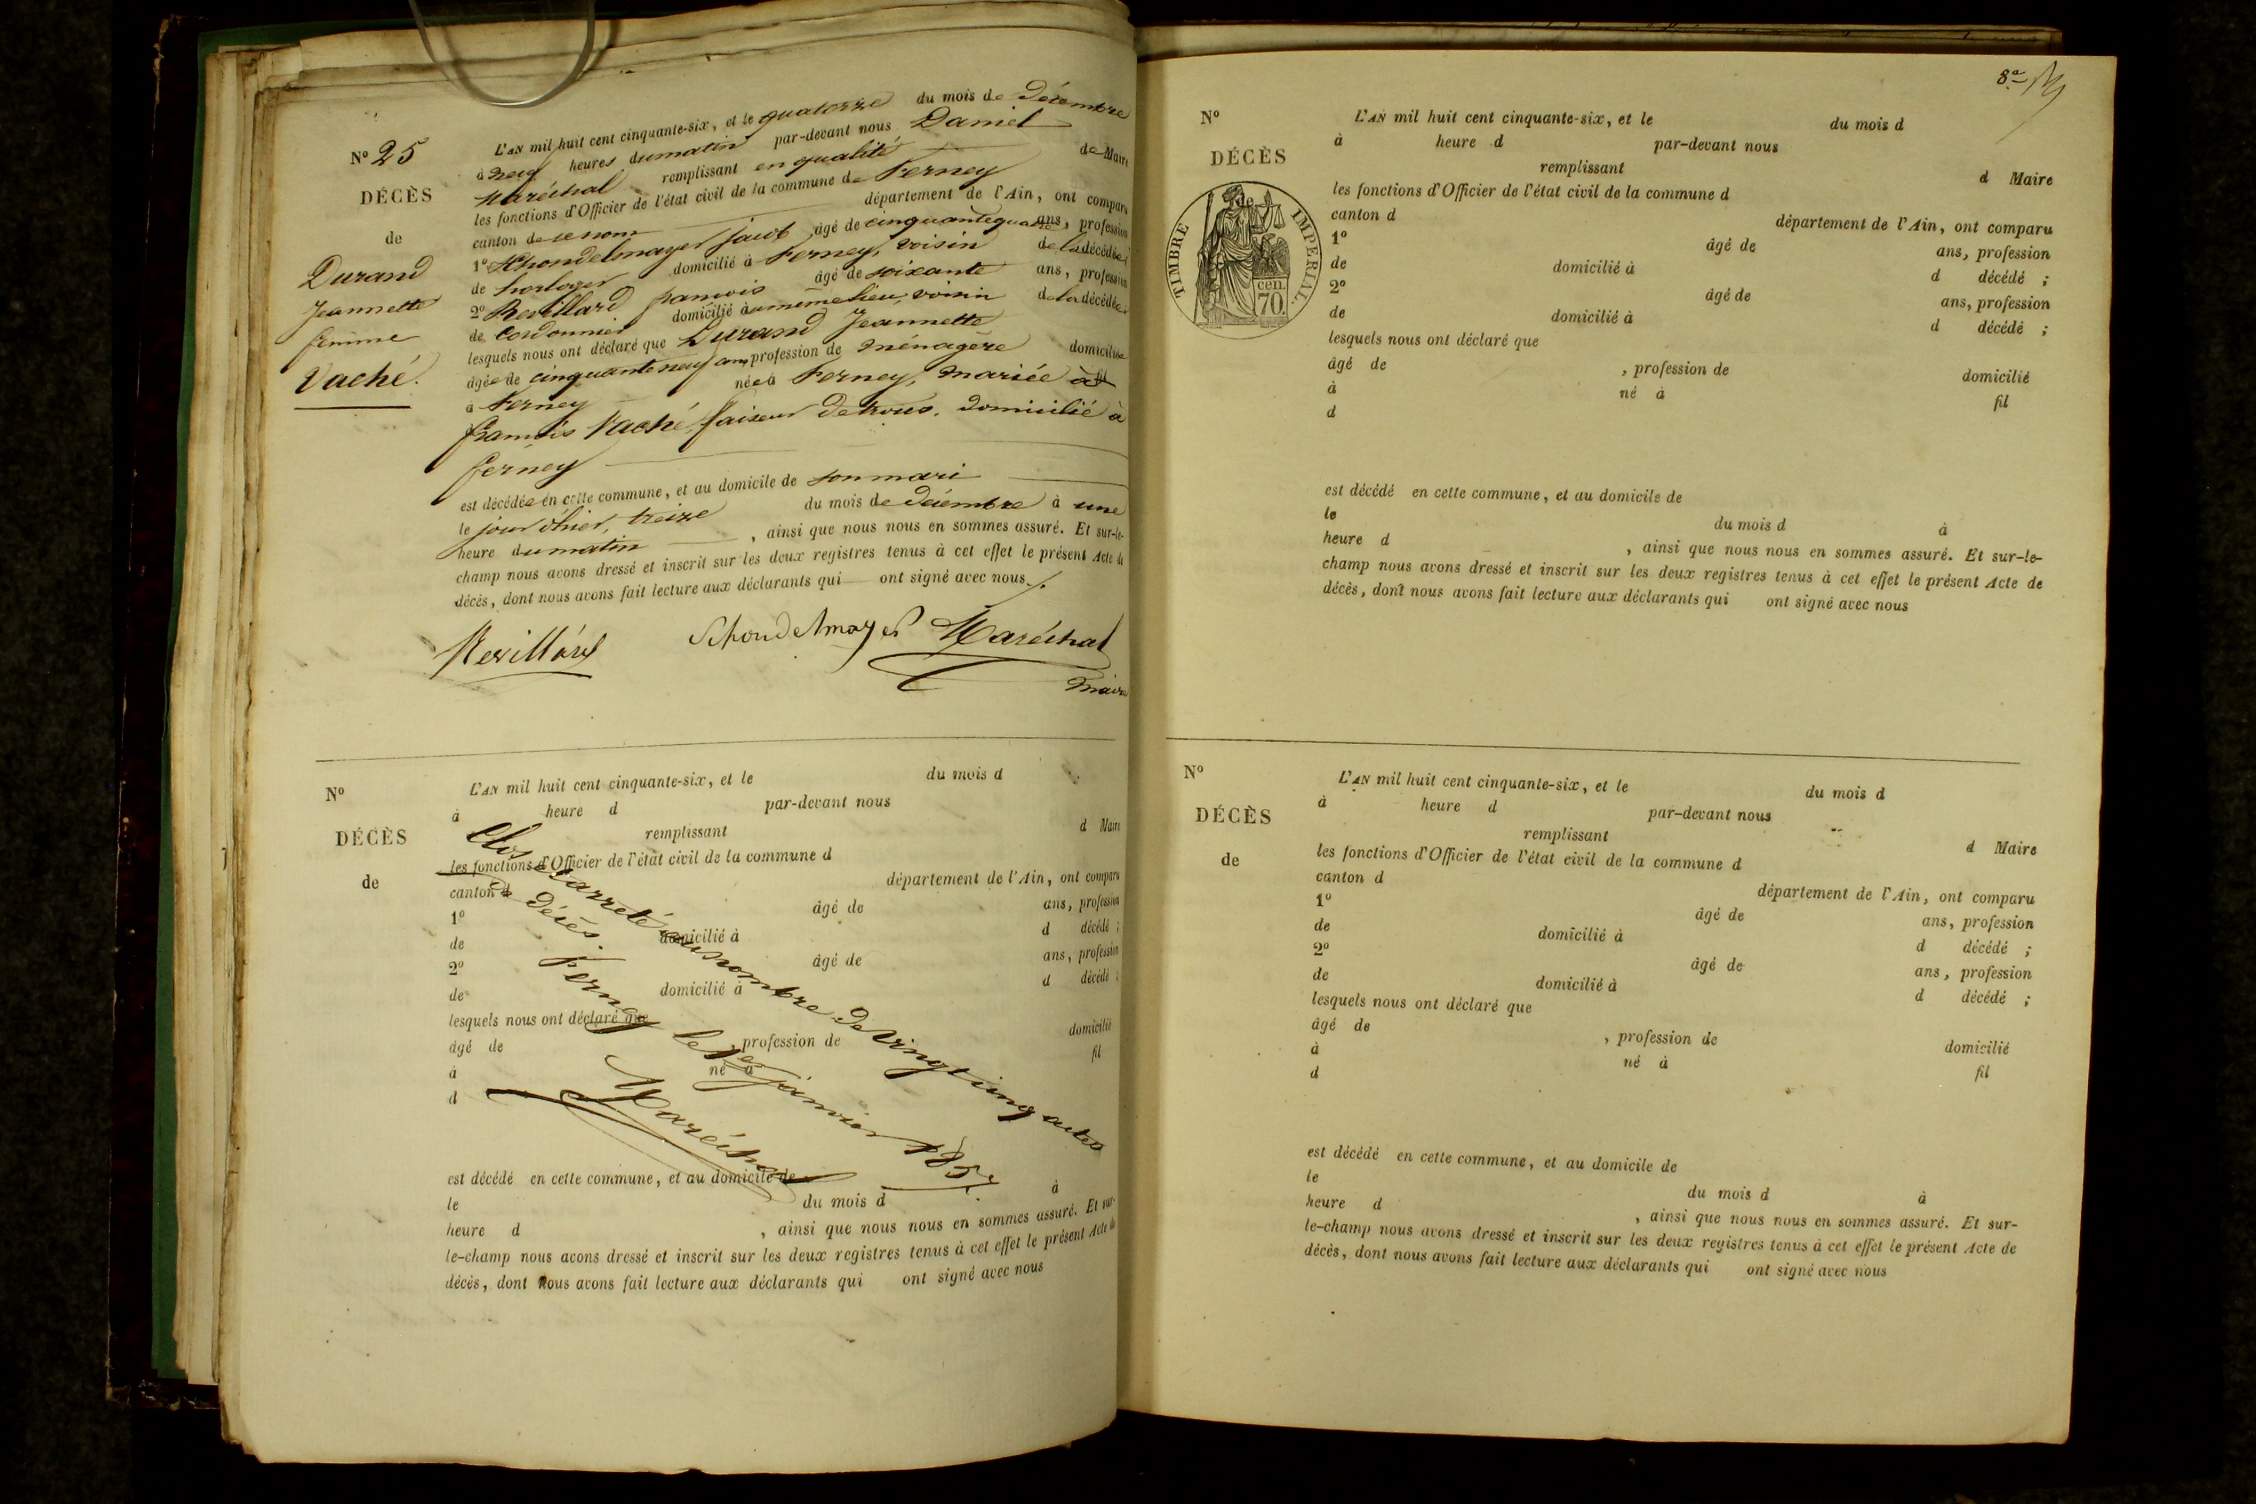 N° 25
DÉCÈS
de
Durand
Jeannette
femme
Vaché.
L'AN mil huit cent cinquante-six, et le quatorze du mois de Décembre
à neuf heures du matin par-devant nous Daniel
Maréchal remplissant en qualité de Maire
les fonctions d'Officier de l'état civil de la commune de Ferney
canton de ce nom département de l'Ain, ont comparu
1° Schondelmayer Jacob âgé de cinquante quatre ans, profession
de horloger domicilié à Ferney, voisin de la décédée ;
2° Revillard François âgé de soixante ans, profession
de Cordonnier domicilié au même lieu, voisin de la décédée ;
lesquels nous ont déclaré que Durand Jeannette
âgée de cinquante neuf ans, profession de ménagère domiciliée
à Ferney née à Ferney, mariée à
François Vaché, faiseur de trous, domicilié à
Ferney
est décédée en cette commune, et au domicile de son mari
le jour d'hier, treize du mois de Décembre à une
heure du matin , ainsi que nous nous en sommes assuré. Et sur-le-
champ nous avons dressé et inscrit sur les deux registres tenus à cet effet le présent Acte de
décès, dont nous avons fait lecture aux déclarants qui ont signé avec nous.
Revillard Schondelmayer Maréchal
maire
N°
DÉCÈS
de
L'AN mil huit cent cinquante-six, et le du mois d
à heure d par-devant nous
remplissant d Maire
les fonctions d'Officier de l'état civil de la commune d
canton d département de l'Ain, ont comparu
1° âgé de ans, profession
de domicilié à d décédé ;
2° âgé de ans, profession
de domicilié à d décédé ;
lesquels nous ont déclaré que
âgé de , profession de domicilié
à né à fil
d
Clos et arrêté au nombre de vingt cinq actes
de décès.
Ferney le 1er janvier 1857.
Maréchal
est décédé en cette commune, et au domicile de
le du mois d à
heure d , ainsi que nous nous en sommes assuré. Et sur-
le-champ nous avons dressé et inscrit sur les deux registres tenus à cet effet le présent Acte de
décès, dont nous avons fait lecture aux déclarants qui ont signé avec nous
8e
N°
DÉCÈS
TIMBRE IMPERIAL.
cen.
70.
L'AN mil huit cent cinquante-six, et le du mois d
à heure d par-devant nous
remplissant d Maire
les fonctions d'Officier de l'état civil de la commune d
canton d département de l'Ain, ont comparu
1° âgé de ans, profession
de domicilié à d décédé ;
2° âgé de ans, profession
de domicilié à d décédé ;
lesquels nous ont déclaré que
âgé de , profession de domicilié
à né à fil
d
est décédé en cette commune, et au domicile de
le du mois d à
heure d , ainsi que nous nous en sommes assuré. Et sur-le-
champ nous avons dressé et inscrit sur les deux registres tenus à cet effet le présent Acte de
décès, dont nous avons fait lecture aux déclarants qui ont signé avec nous
N°
DÉCÈS
de
L'AN mil huit cent cinquante-six, et le du mois d
à heure d par-devant nous
remplissant d Maire
les fonctions d'Officier de l'état civil de la commune d
canton d département de l'Ain, ont comparu
1° âgé de ans, profession
de domicilié à d décédé ;
2° âgé de ans, profession
de domicilié à d décédé ;
lesquels nous ont déclaré que
âgé de , profession de domicilié
à né à fil
d
est décédé en cette commune, et au domicile de
le du mois d à
heure d , ainsi que nous nous en sommes assuré. Et sur-
le-champ nous avons dressé et inscrit sur les deux registres tenus à cet effet le présent Acte de
décès, dont nous avons fait lecture aux déclarants qui ont signé avec nous